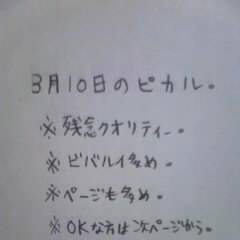 3月10日のピカル。
※残念クオリティー。
※ビバルイ多め。
※ページも多め。
※OKな方は次ページから。